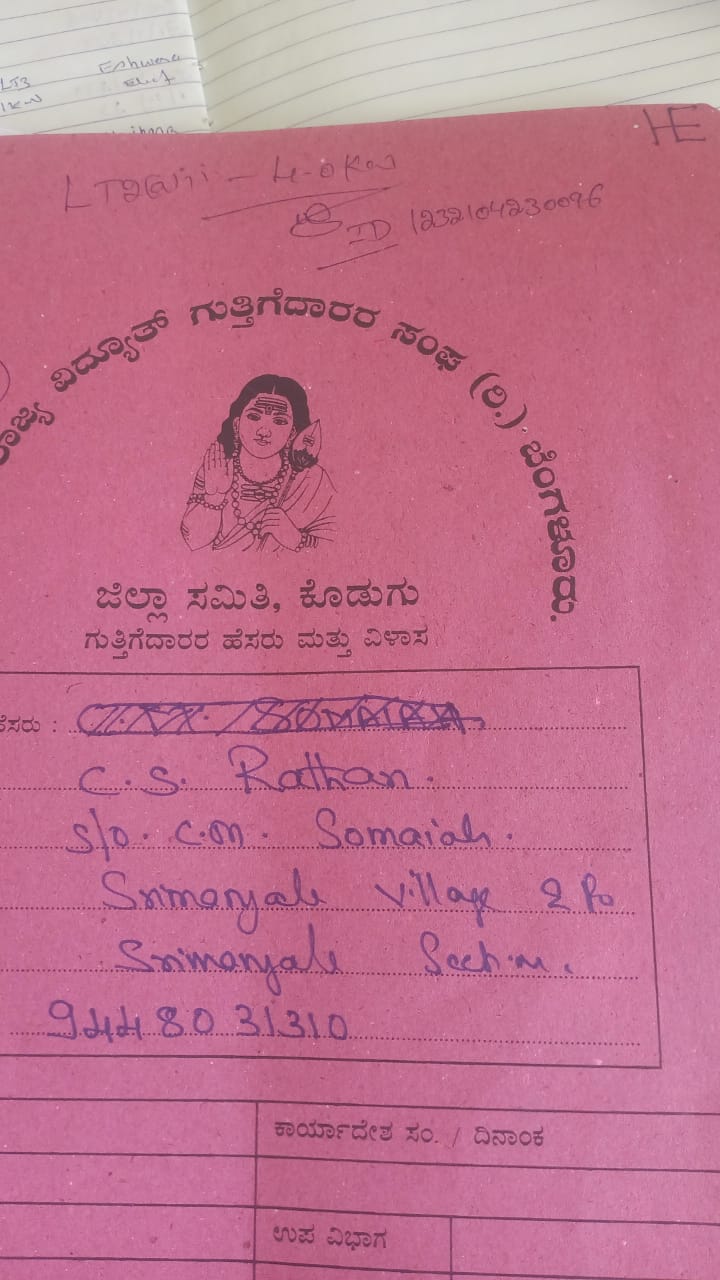 LT3
Eshwara
1KW
Elect
HE
4.0KW
ID 1232104230096
ರಾಜ್ಯ ವಿದ್ಯೂತ್ ಗುತ್ತಿಗೆದಾರರ ಸಂಘ (ರಿ.) ಬೆಂಗಳೂರು.
ಜಿಲ್ಲಾ ಸಮಿತಿ, ಕೊಡುಗು
ಗುತ್ತಿಗೆದಾರರ ಹೆಸರು ಮತ್ತು ವಿಳಾಸ
ಹೆಸರು :
C.S. Rathan.
S/o. C.M. Somaiah.
Srimangala Village & Po
Srimangala Section.
9448031310
ಕಾರ್ಯಾದೇಶ ಸಂ. / ದಿನಾಂಕ
ಉಪ ವಿಭಾಗ